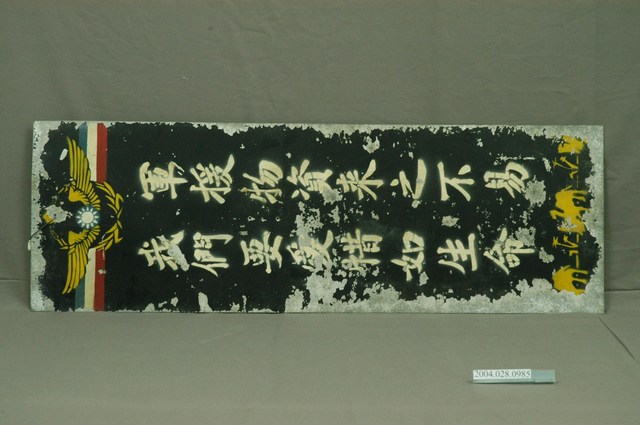 軍援物資來之不易
我們要愛惜如生命
2004.028.0985